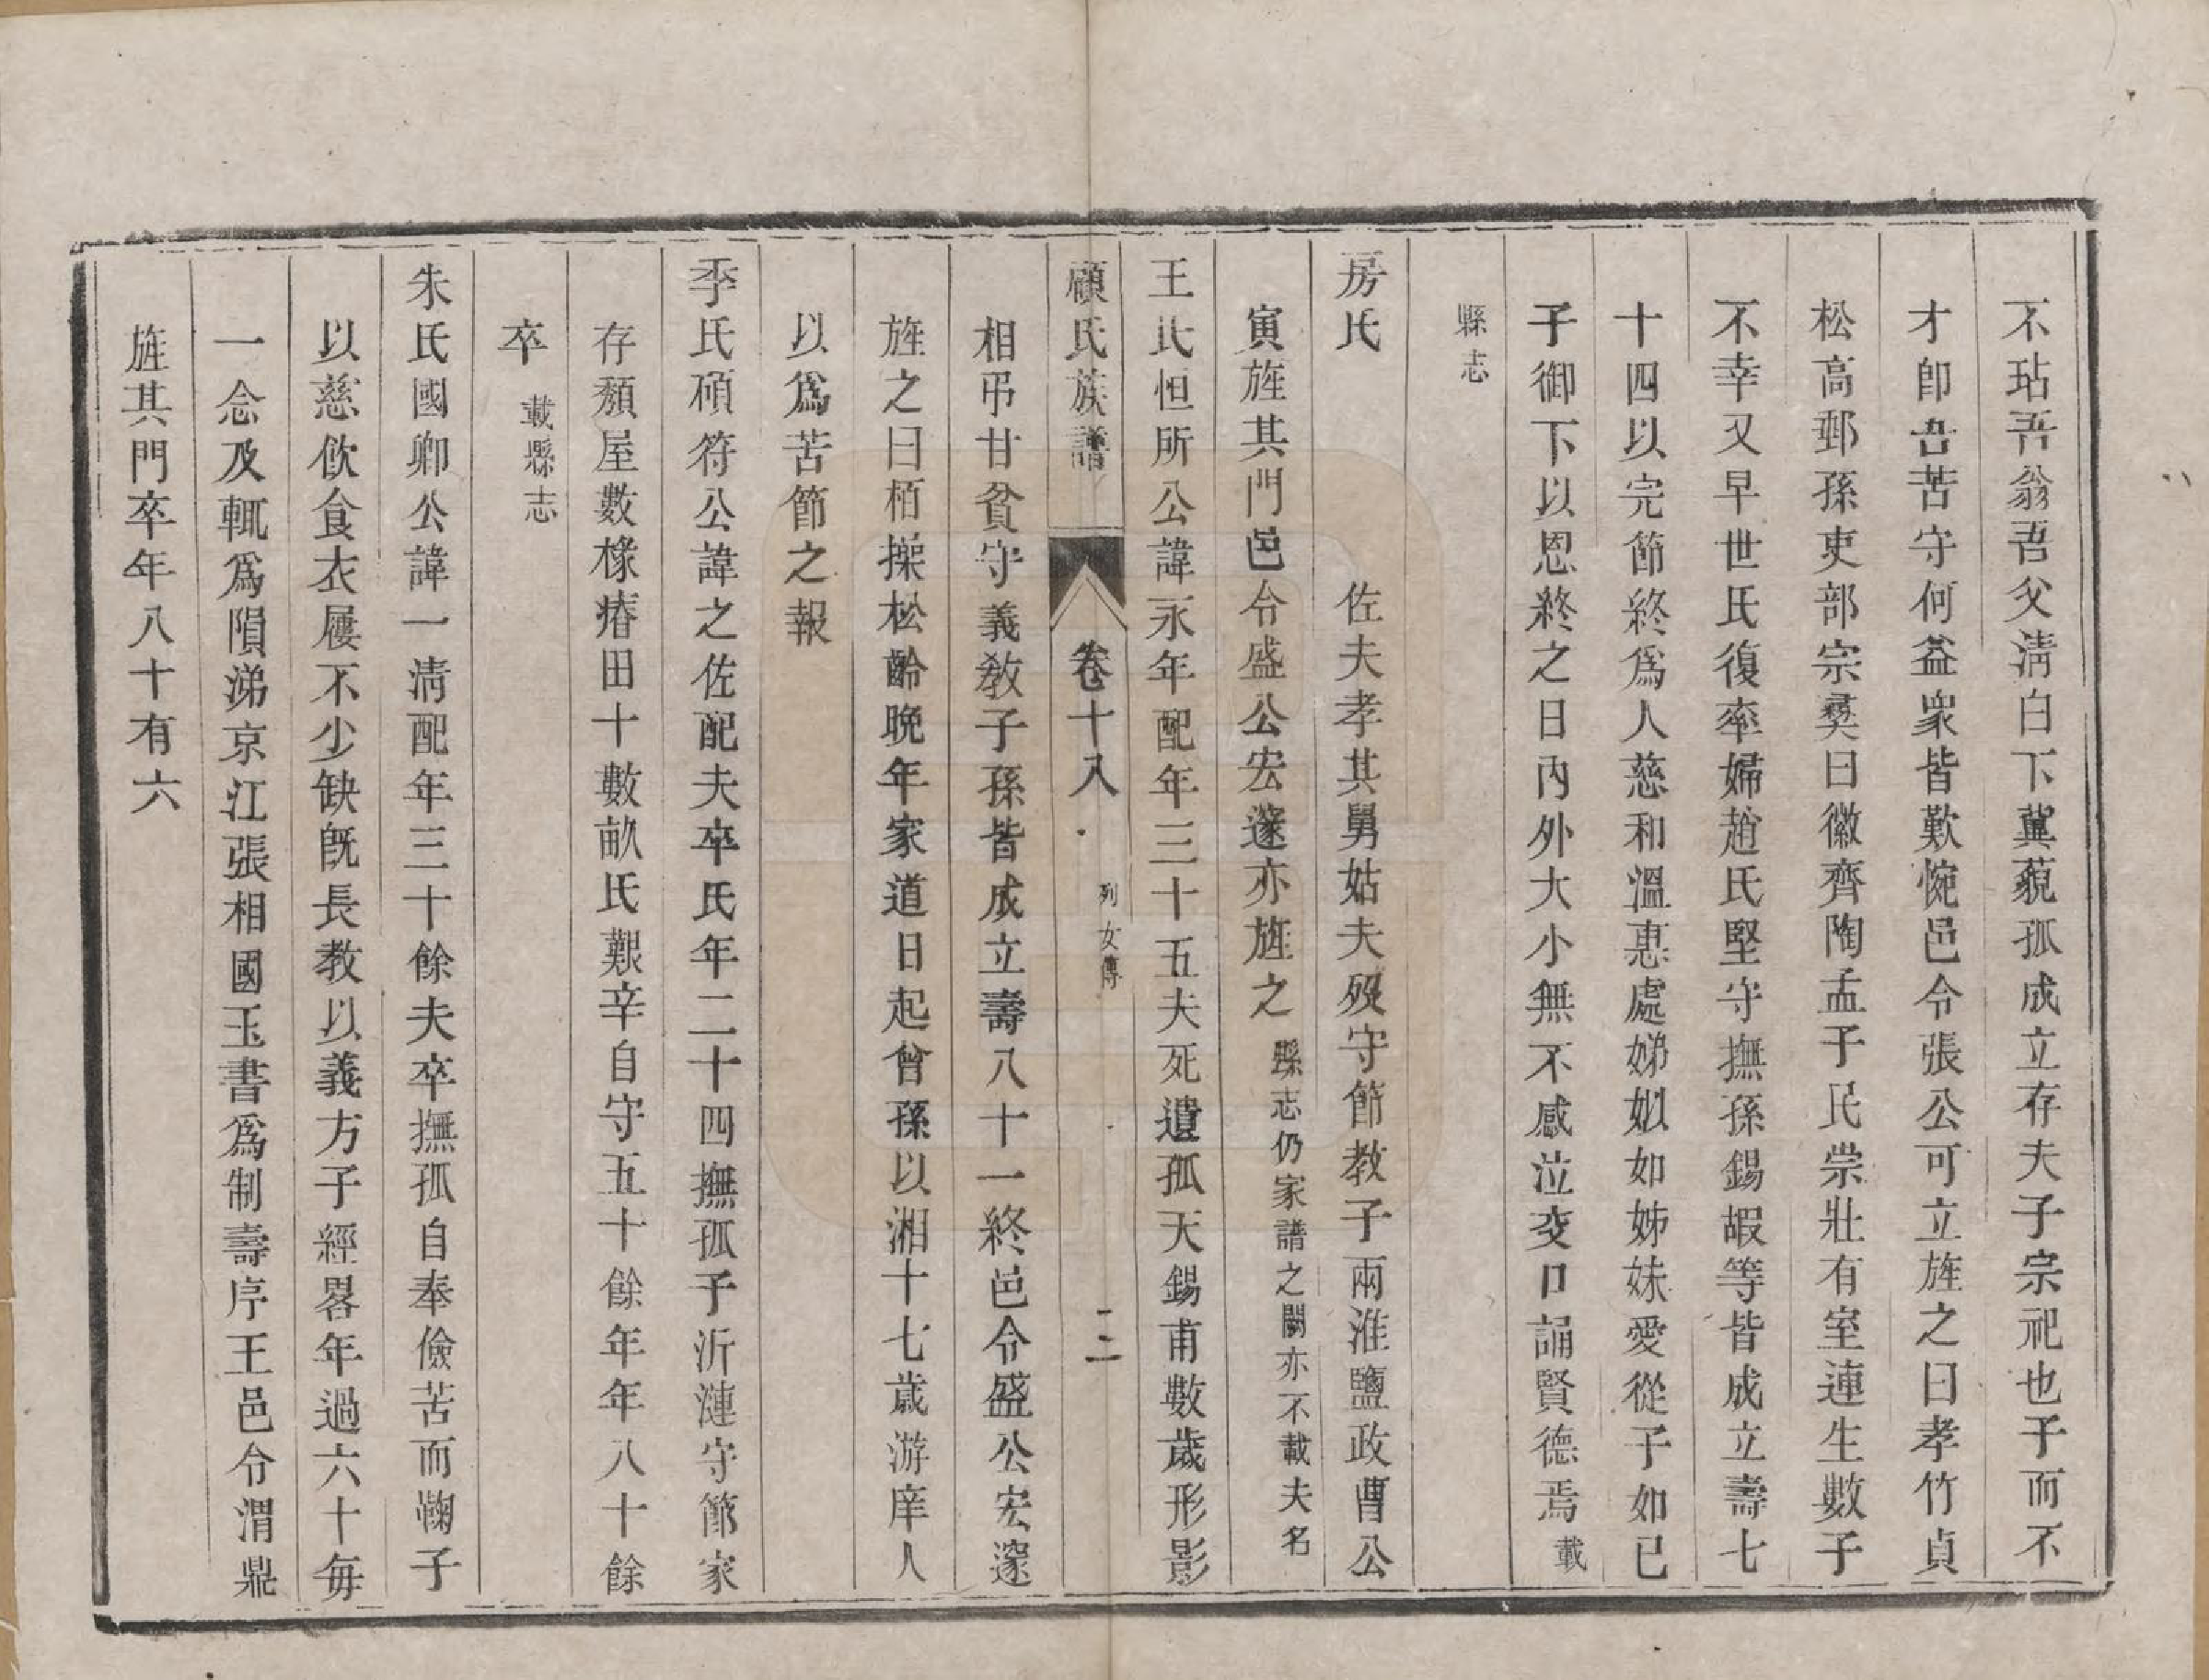 不玷吾翁吾父淸白下冀藐孤成立存夫子宗祀也子而不
才卽吾苦守何益衆皆歎惋邑令張公可立旌之曰孝竹貞
松高郵孫吏部宗彛曰徽齊陶孟子民崇壯有室連生數子
不幸又早世氏復率婦趙氏堅守撫孫錫嘏等皆成立壽七
十四以完節終爲人慈和溫惠處娣姒如姊妹愛從子如已
子御下以恩終之日內外大小無不感泣交口誦賢德焉載
縣志
房氏 佐夫孝其舅姑夫歿守節教子兩淮鹽政曹公
寅旌其門邑令盛公宏邃亦旌之縣志仍家譜之闕亦不載夫名
王氏恒所公諱永年配年三十五夫死遺孤天錫甫數歲形影
顧氏族譜 卷十八 列女傳 二
相弔甘貧守義敎子孫皆成立壽八十一終邑令盛公宏邃
旌之曰栢操松齡晚年家道日起曾孫以湘十七歲游庠人
以爲苦節之報
季氏碩符公諱之佐配夫卒氏年二十四撫孤子沂漣守節家
存頹屋數椽瘠田十數畝氏艱辛自守五十餘年年八十餘
卒載縣志
朱氏國卿公諱一淸配年三十餘夫卒撫孤自奉儉苦而鞠子
以慈飲食衣屨不少缺旣長教以義方子經畧年過六十每
一念及輒爲隕涕京江張相國玉書爲制壽序王邑令渭鼎
旌其門卒年八十有六